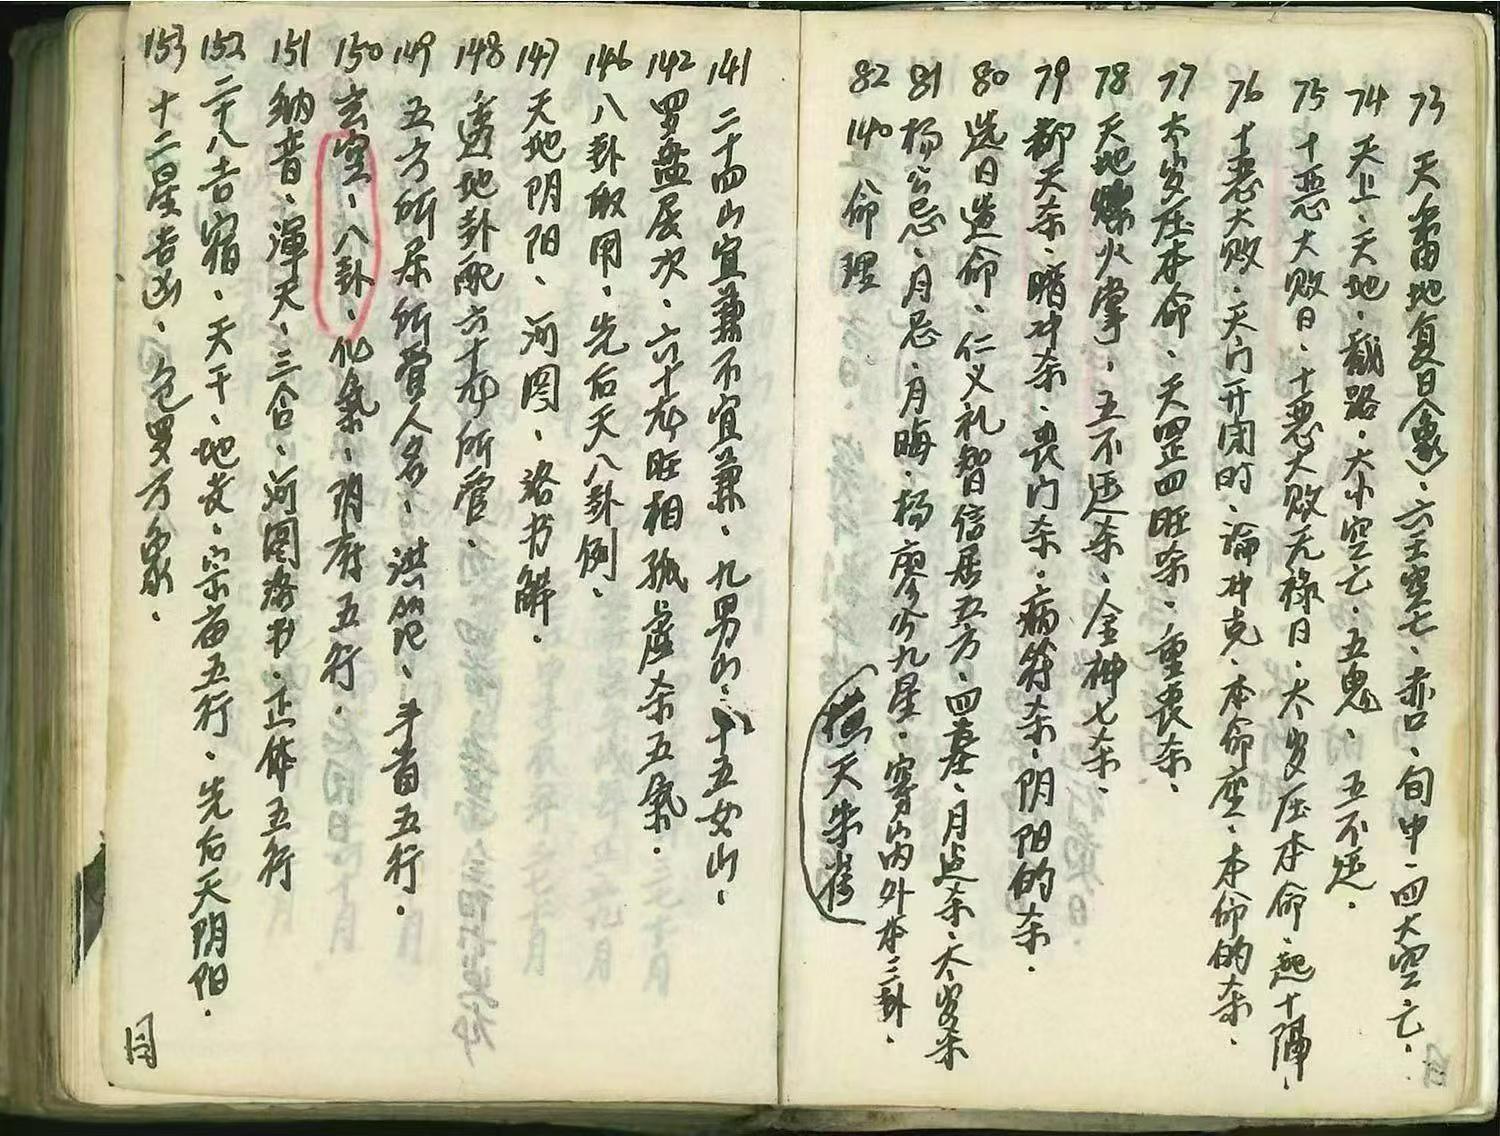 73 天番地复日(象)、六壬空亡、赤口、旬中、四大空亡、
74 天上、天地、截路、大小空亡、五鬼、五不遇、
75 十恶大败日、十恶大败无禄日、太岁压本命、起十隔、
76 十恶大败、天门开闭时、论冲克、本命座、本命的杀、
77 太岁压本命、天罡四旺杀、重丧杀、
78 天地爍火掌、五不返杀、金神七杀、
79 都天杀、暗冲杀、丧门杀、病符杀、阴阳的杀、
80 选日造命、仁义礼智信居五方、四墓、月建杀、太岁杀
81 杨公忌、月忌、月晦、杨廖公九星、穿山内外本二卦、
82 140 命理
天朱雀
141 二十四山宜兼不宜兼、九男山、十五女山、
142 罗盘层次、六十龙旺相孤虚杀五氣、
146 八卦取用、先后天八卦例、
147 天地阴阳、河图、洛书解、
148 透地卦配六十龙所管、
149 五方所属所管人名、洪范、斗首五行、
150 玄空、八卦、化氣、阴府五行、
151 纳音、渾天、三合、河图洛书、正体五行
152 二十八吉宿、天干、地支、宗庙五行、先后天阴阳、
153 十二星吉凶、包罗万象、
目